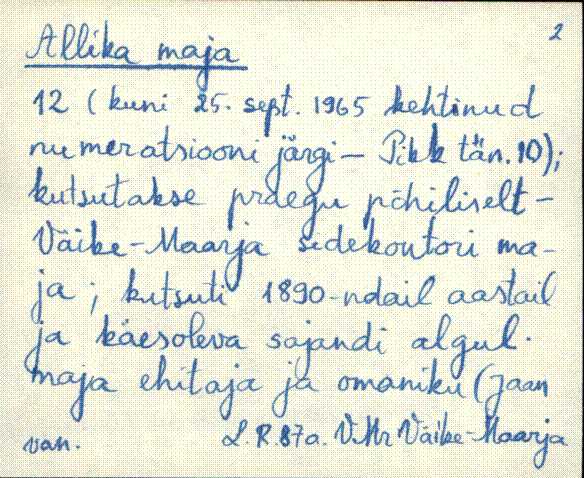 2
Allika maja
12 (kuni 25. sept. 1965 kehtinud
numeratsiooni järgi – Pikk tän. 10);
kutsutakse praegu põhiliselt –
Väike-Maarja sidekontori ma-
ja; kutsuti 1890-ndail aastail
ja käesoleva sajandi algul.
maja ehitaja ja omaniku (Jaan
van. L. R. 87a. V.Mr Väike-Maarja